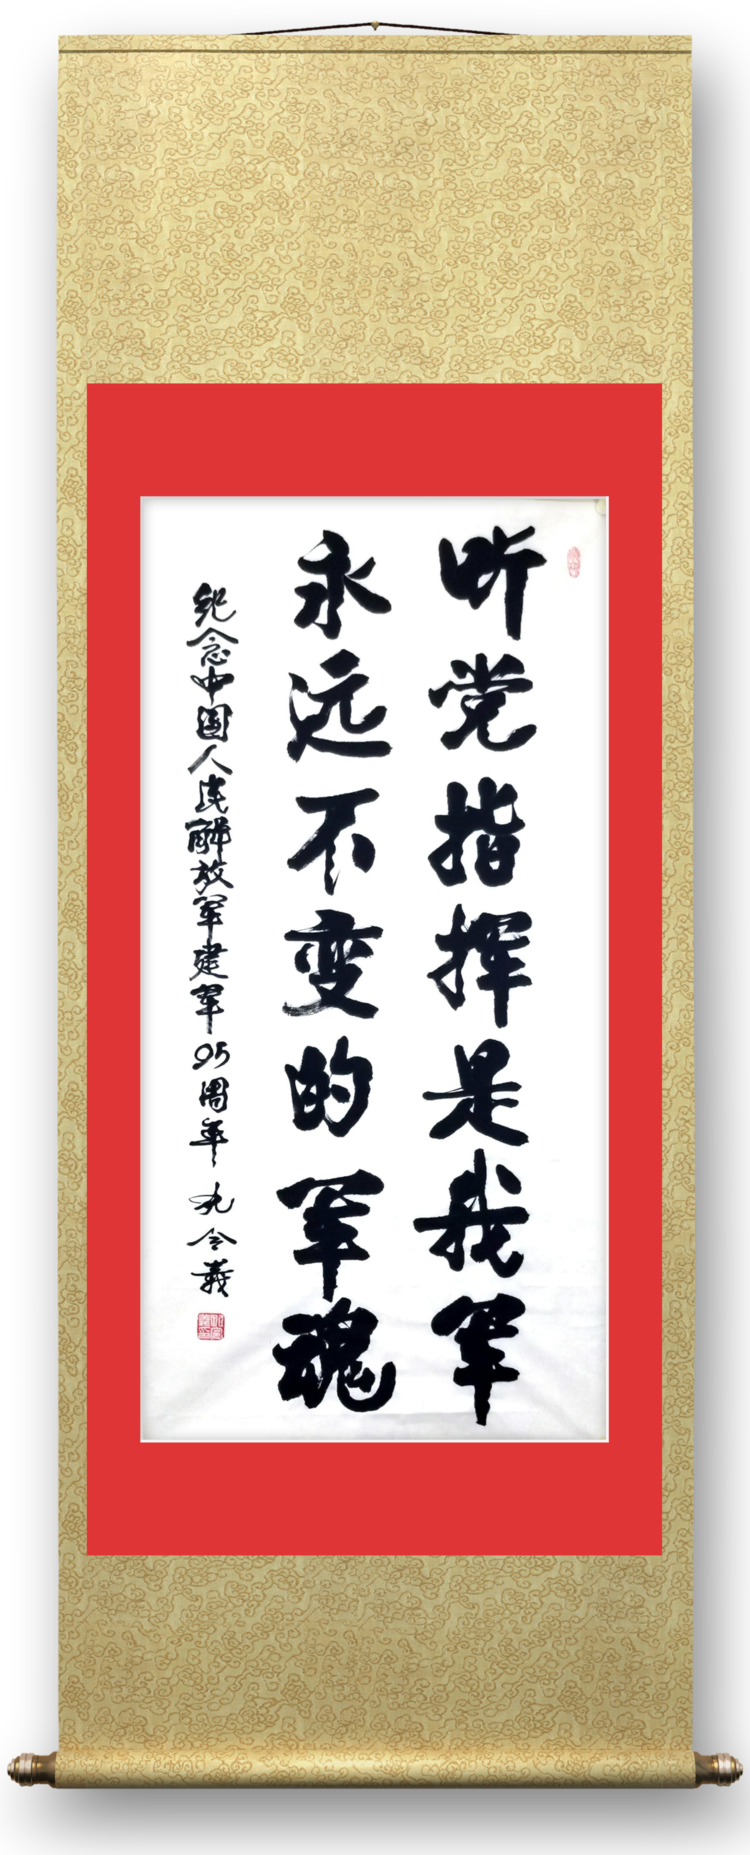 听党指挥是我军
永远不变的军魂
纪念中国人民解放军建军95周年 孔令義